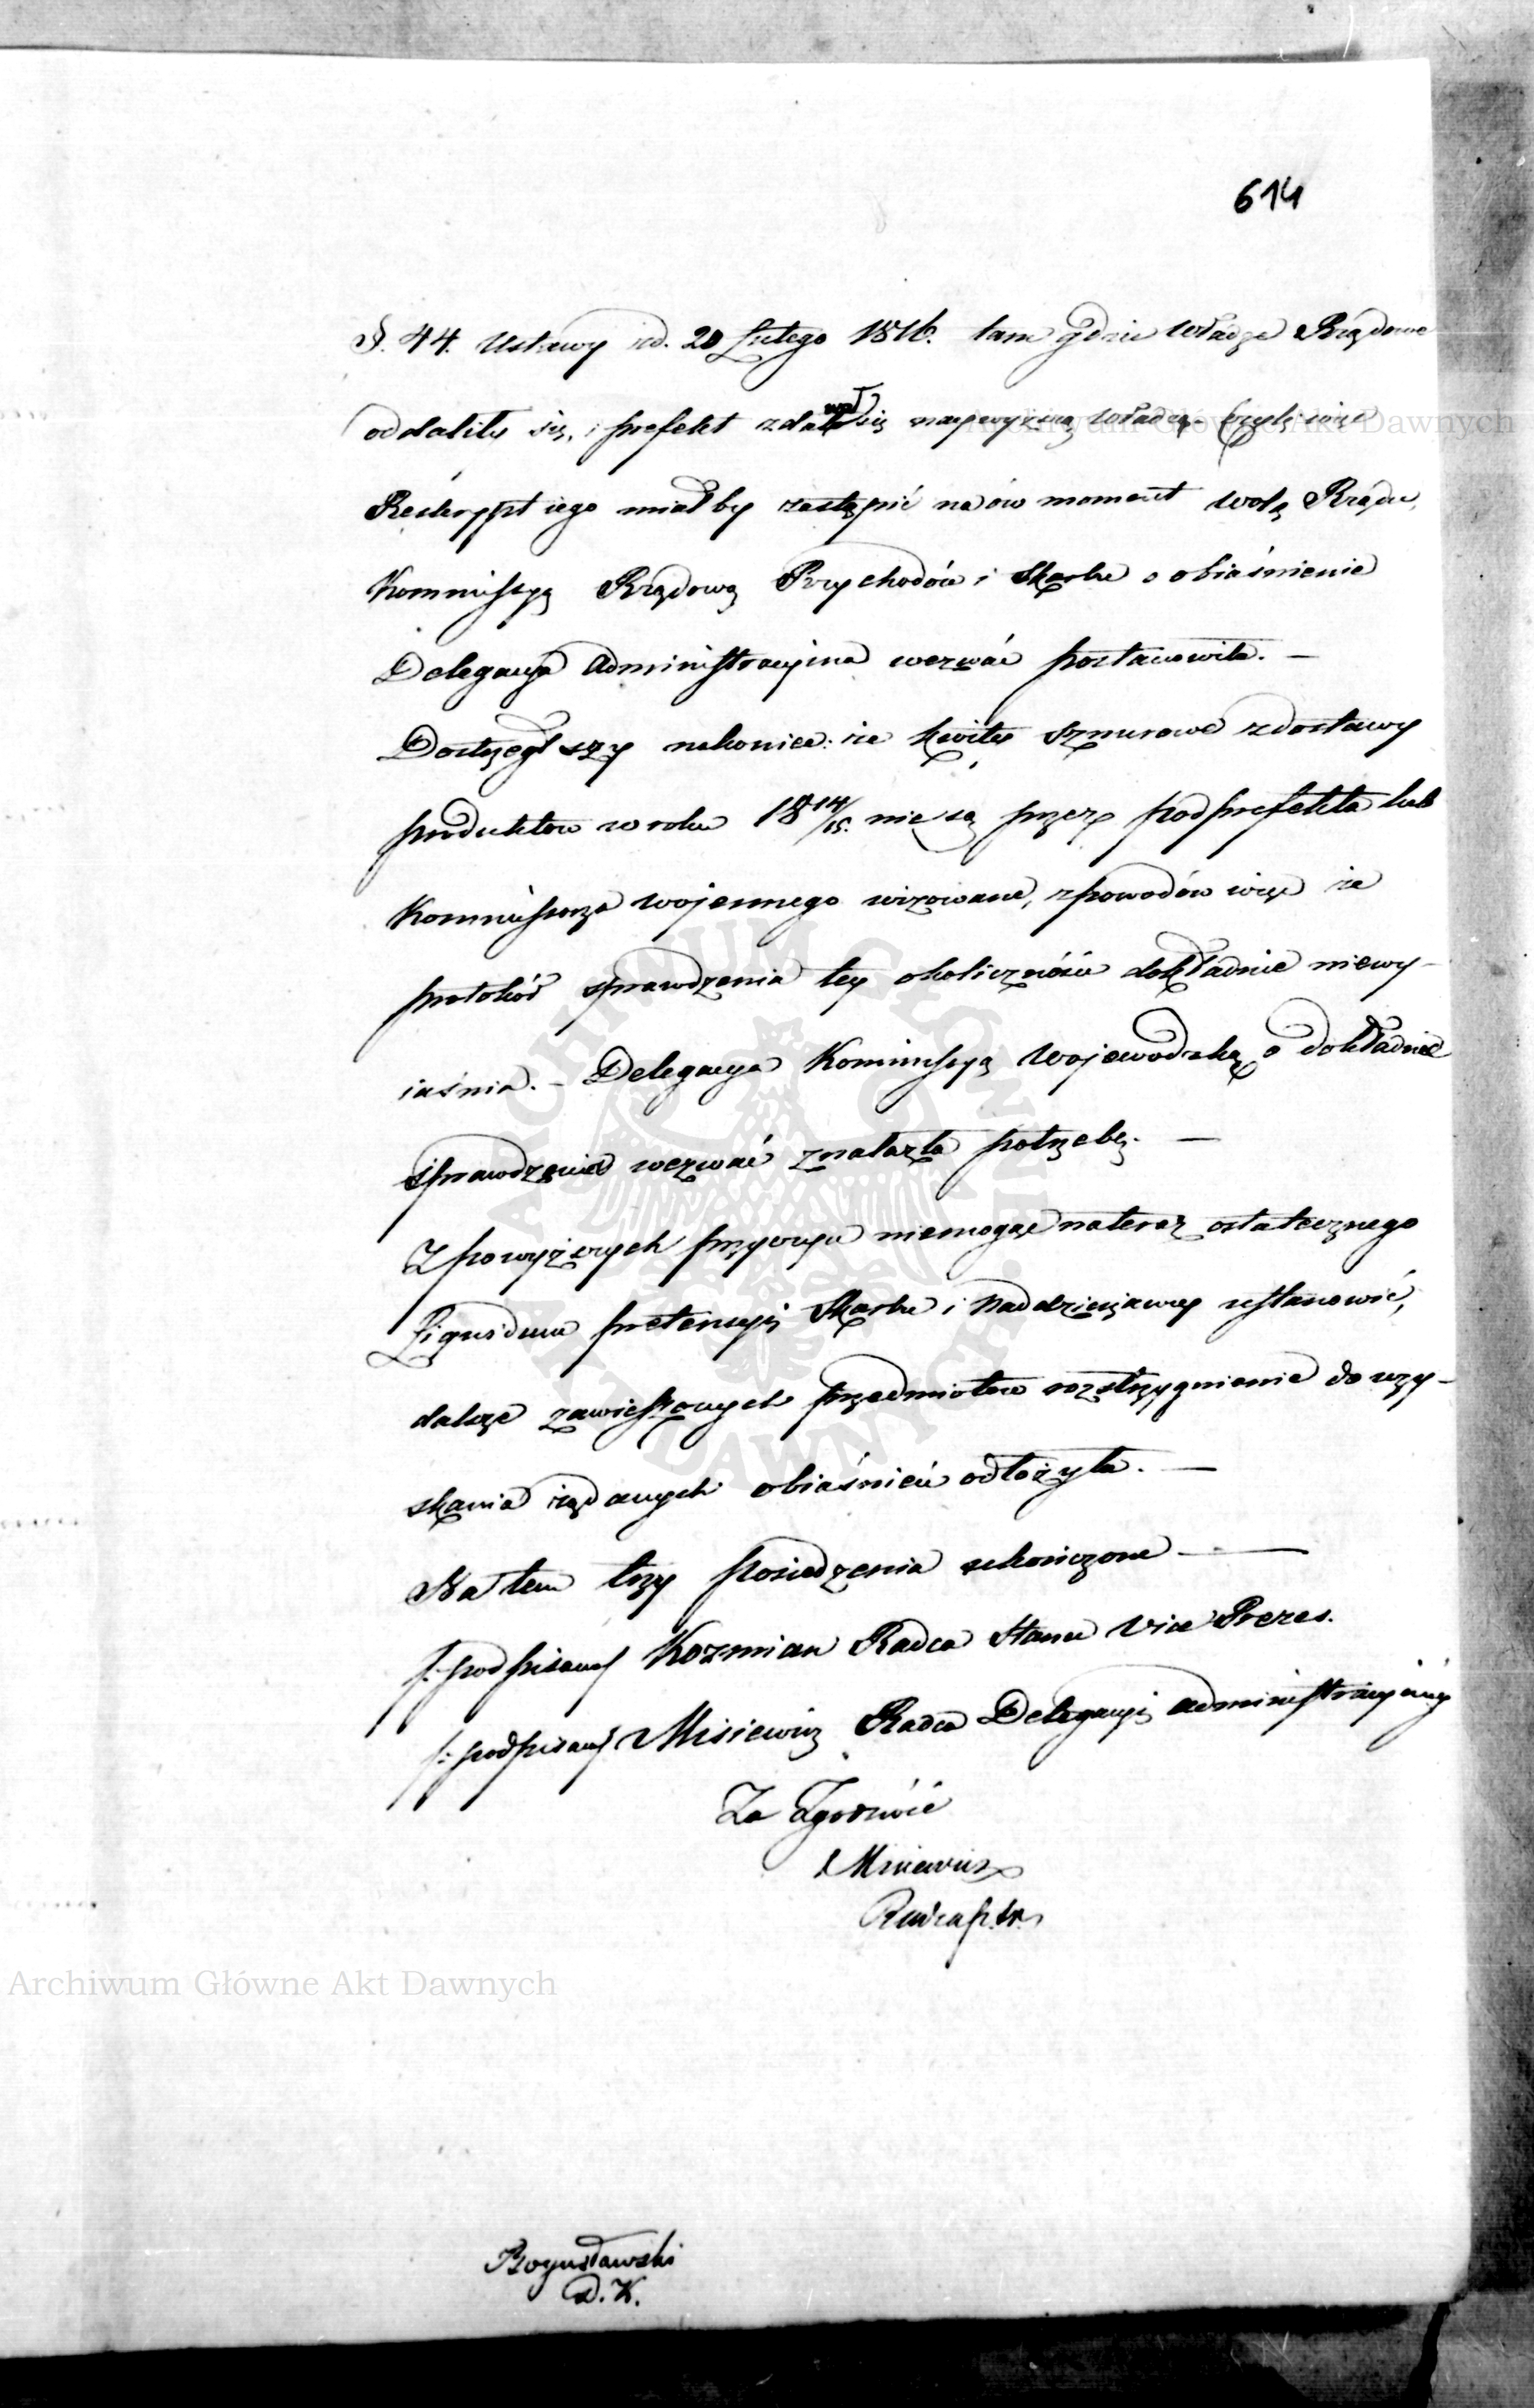 614
§. 44. Ustawy z d. 20 Lutego 1816. tam gdzie Władze Rządowe
oddaliły się, i prefekt zdawał się naywyższą władzą. Czyli więc
Reskrypt iego miałby zastąpić na ów moment wolą Rządu,
Kommissyą Rządową Przychodów i Skarbu o obiaśnienie
Delegacya Administracyina wezwać postanowiła. —
Dostrzegłszy nakoniec: że kwity sznurowe z dostawy
produktów w roku 1814/15. nie są przez podprefekta lub
Kommissarza wojennego wizowane, z powodów więc że
protokół sprawdzenia tey okoliczności dokładnie niewy-
iaśnia. – Delegacya Kommissyą Wojewodzką o dokładne
sprawdzenie wezwać znalazła potrzebę. —
Z powyższych przyczyn niemogąc na teraz ostatecznego
Liquidum pretensyi Skarbu i Naddzierżawcy ustanowić,
dalsze zawieszonych przedmiotów rozstrzygnienie do uzy-
skania żądanych obiaśnień odłożyła. —
Na tem trzy posiedzenia ukończone —
/: podpisany/ Kozmian Radca Stanu Vice Prezes.
/: podpisany/ Misiewicz Radca Delegacyi administracyiney
Za Zgodność
Misiewicz
Radca
Bogusławski
D. K.
Archiwum Główne Akt Dawnych
Archiwum Główne Akt Dawnych
ARCHIWUM GŁÓWNE AKT DAWNYCH